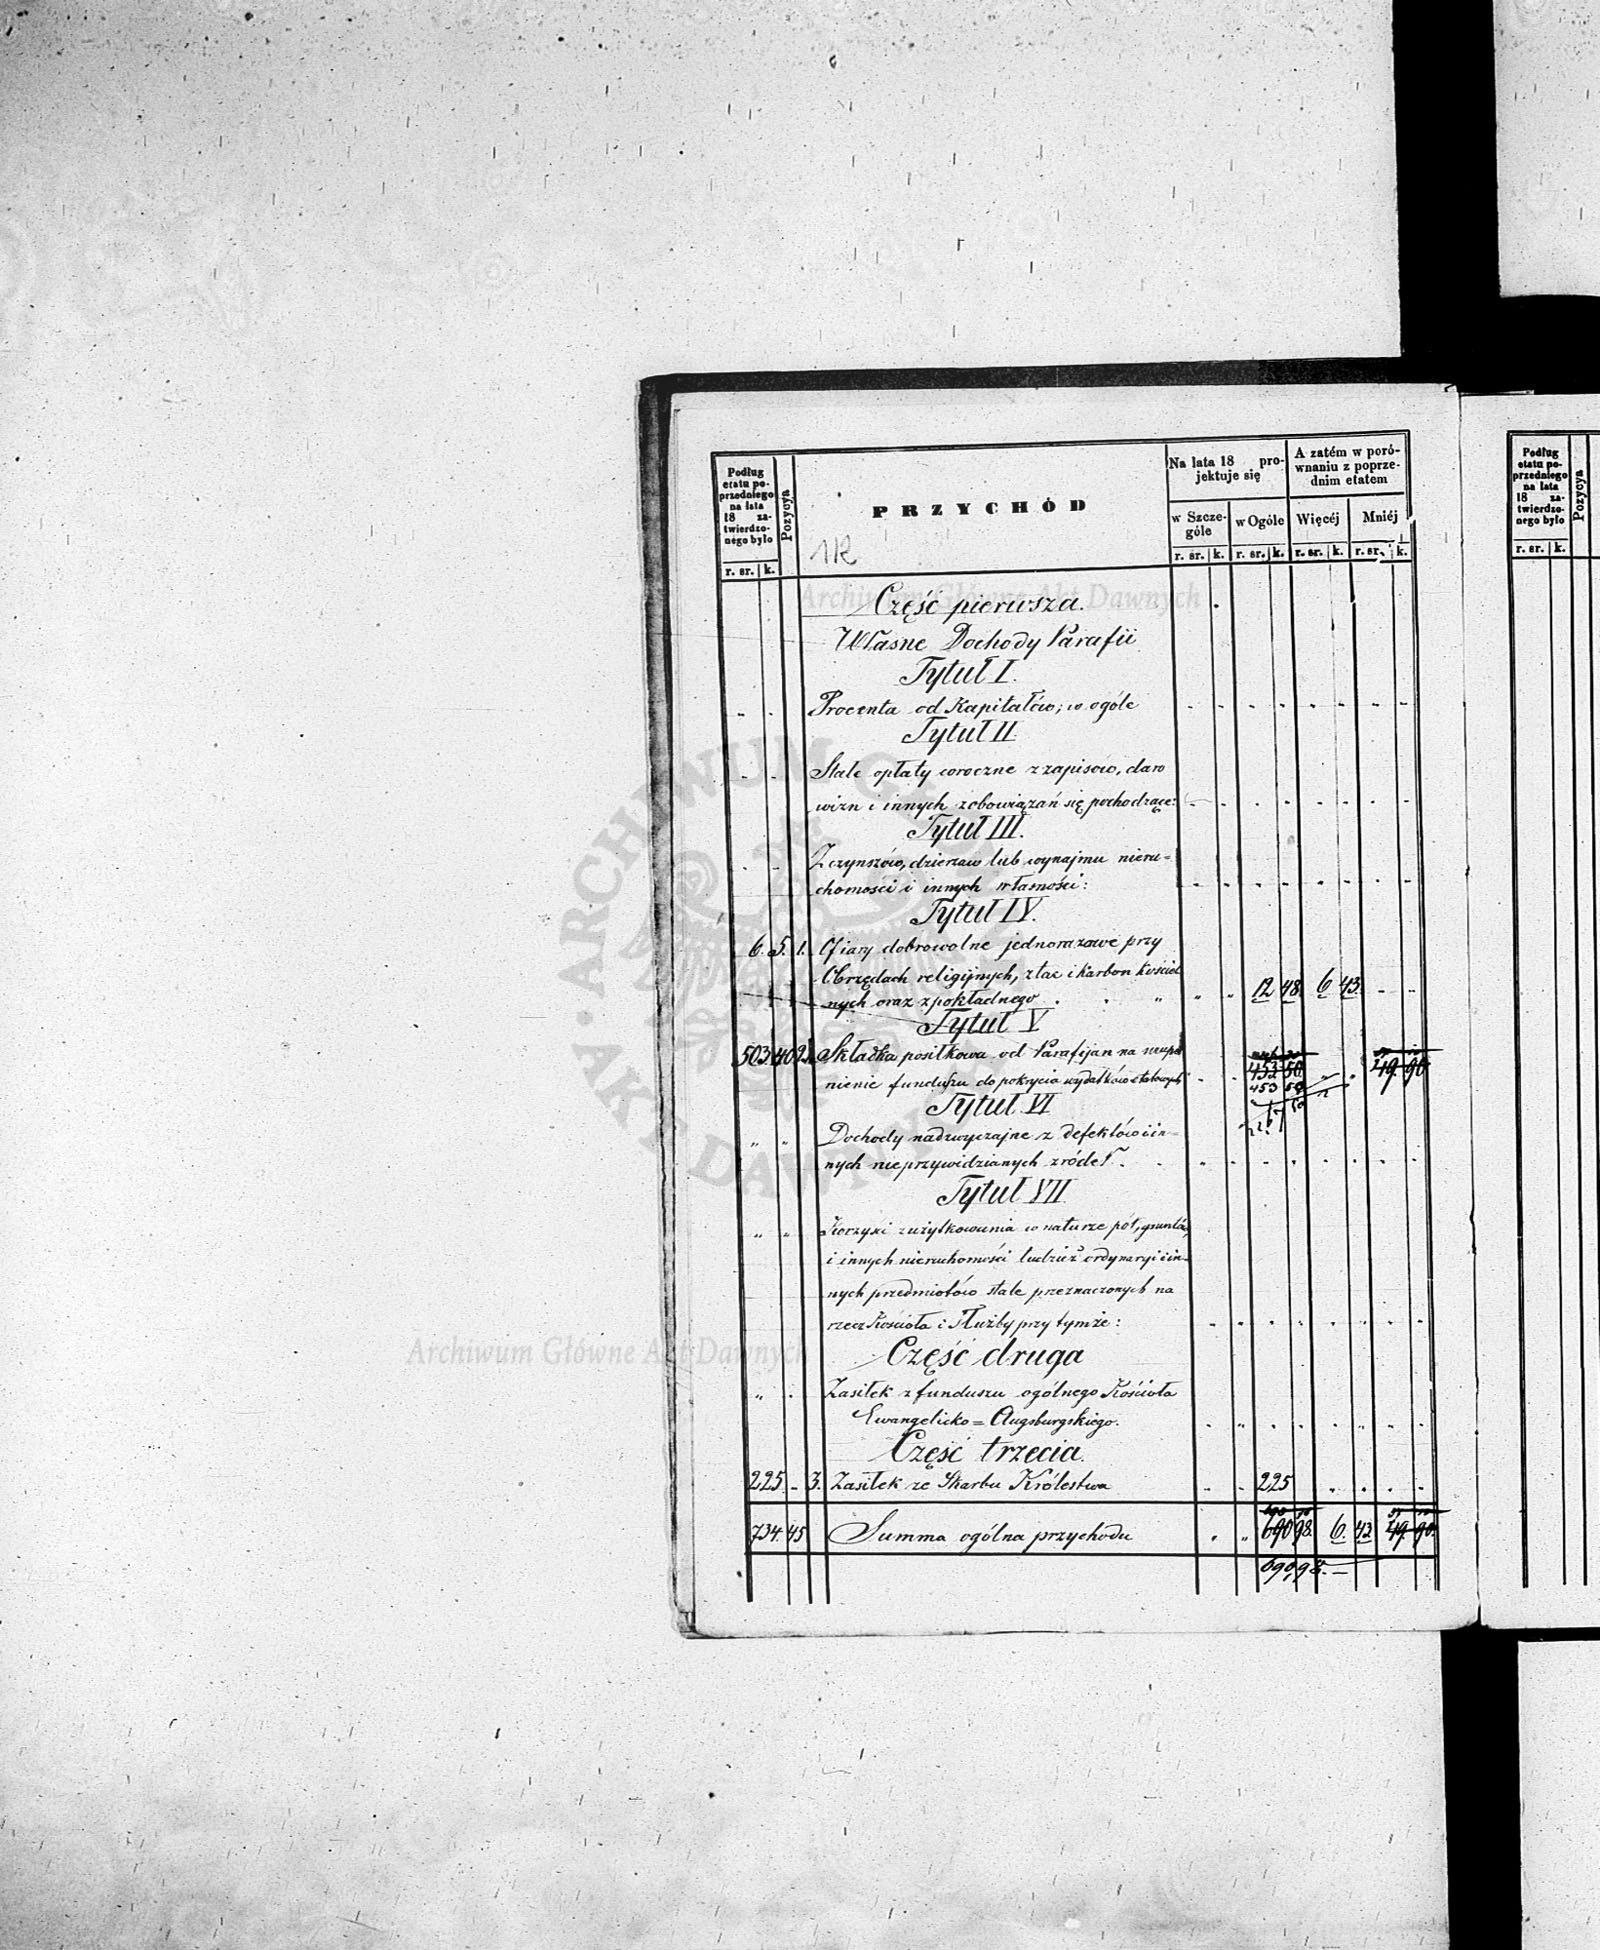 Podług
etatu po-
przedniego
na lata
18 za-
twierdzo-
nego było
r. sr. k.
Pozycya
PRZYCHÓD
112
Na lata 18 pro-
jektuje się
w Szcze-
góle
r. sr. k.
w Ogóle
r. sr. k.
A zatém w poró-
wnaniu z poprze-
dnim etatem
Więcéj
r. sr. k.
Mniéj
r. sr. k.
Część pierwsza.
Własne Dochody Parafii
Tytuł I.
Procenta od Kapitałów; w ogóle
Tytuł II
Stałe opłaty coroczne z zapisów, daro
wizn i innych zobowiązań się pochodzące:
Tytuł III.
Z czynszów, dzierzaw lub wynajmu nieru-
chomości i innych własności:
Tytuł IV.
6. 5. 1. Ofiary dobrowolne jednorazowe przy
Obrzędach religijnych, z tac i karbon kościel
nych oraz z pokładnego 12 48 6 43.
Tytuł V
503. 40 2. Składka posiłkowa od Parafijan na uzupeł 452 50. 49 90
nienie funduszu do pokrycia wydatków etatowych 453 50
Tytuł VI
Dochody nadzwyczajne z defektów i in-
nych nieprzywidzianych zródeł.
Tytuł VII
Korzyści z użytkowania w naturze pól, gruntów,
i innych nieruchomości tudzież ordynaryi i in-
nych przedmiotów stale przeznaczonych na
rzecz Kościoła i Służby przy tymże:
Część druga
Zasiłek z funduszu ogólnego Kościoła
Ewangelicko=Augsburgskiego.
Część trzecia.
225 3. Zasiłek ze Skarbu Królestwa 225
734. 45 Summa ogólna przychodu 690 98. 6. 43 49 90.
690,98.—
Podług
etatu po-
przedniego
na lata
18 za-
twierdzo-
nego było
r. sr. k.
Pozycya
Archiwum Główne Akt Dawnych
ARCHIWUM GŁÓWNE AKT DAWNYCH
Archiwum Główne Akt Dawnych